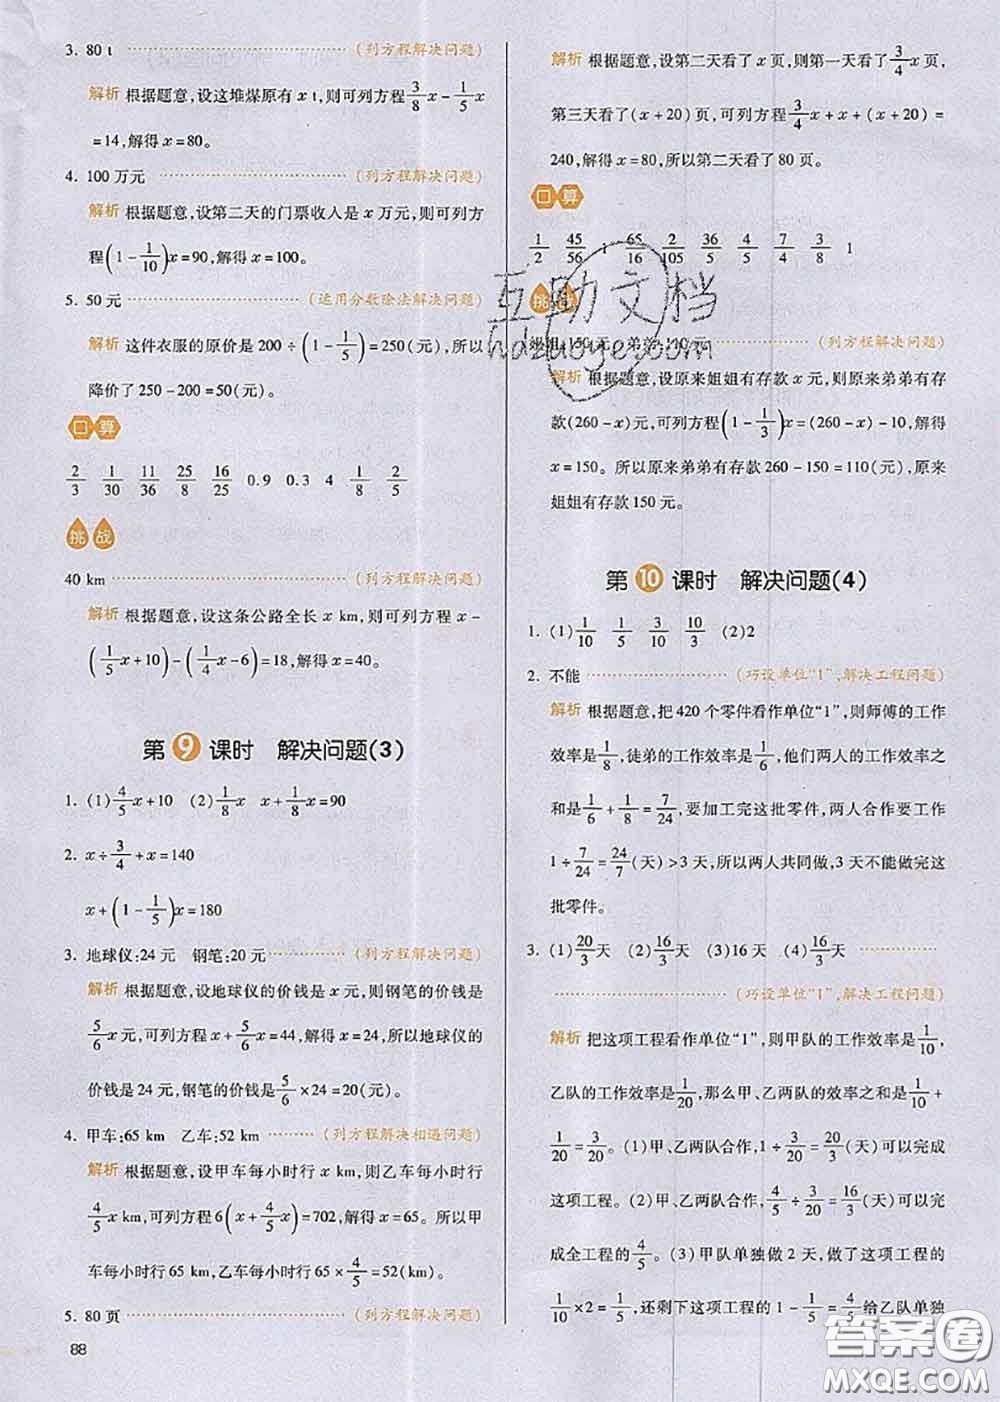 3. 80 t (列方程解决问题)
解析 根据题意,设这堆煤原有 x t,则可列方程 3/8 x - 1/5 x
= 14,解得 x = 80。
4. 100 万元 (列方程解决问题)
解析 根据题意,设第二天的门票收入是 x 万元,则可列方
程(1 - 1/10)x = 90,解得 x = 100。
5. 50 元 (运用分数除法解决问题)
解析 这件衣服的原价是 200 ÷ (1 - 1/5) = 250(元),所以
降价了 250 - 200 = 50(元)。
口算
2/3 1/30 11/36 25/8 16/25 0.9 0.3 4 1/8 2/5
挑战
40 km (列方程解决问题)
解析 根据题意,设这条公路全长 x km,则可列方程 x -
(1/5 x + 10) - (1/4 x - 6) = 18,解得 x = 40。
第9课时 解决问题(3)
1. (1) 4/5 x + 10 (2) 1/8 x x + 1/8 x = 90
2. x ÷ 3/4 + x = 140
x + (1 - 1/5)x = 180
3. 地球仪:24 元 钢笔:20 元 (列方程解决问题)
解析 根据题意,设地球仪的价钱是 x 元,则钢笔的价钱是
5/6 x 元,可列方程 x + 5/6 x = 44,解得 x = 24,所以地球仪的
价钱是 24 元,钢笔的价钱是 5/6 × 24 = 20(元)。
4. 甲车:65 km 乙车:52 km (列方程解决相遇问题)
解析 根据题意,设甲车每小时行 x km,则乙车每小时行
4/5 x km,可列方程 6(x + 4/5 x) = 702,解得 x = 65。所以甲
车每小时行 65 km,乙车每小时行 65 × 4/5 = 52(km)。
5. 80 页 (列方程解决问题)
88
解析 根据题意,设第二天看了 x 页,则第一天看了 3/4 x 页,
第三天看了(x + 20)页,可列方程 3/4 x + x + (x + 20) =
240,解得 x = 80,所以第二天看了 80 页。
口算
1/2 45/56 1 65/16 2/105 36/5 4/5 7/4 3/8 1
挑战
姐姐:150 元 弟弟:110 元 (列方程解决问题)
解析 根据题意,设原来姐姐有存款 x 元,则原来弟弟有存
款(260 - x)元,可列方程(1 - 1/3)x = (260 - x) - 10,解得
x = 150。所以原来弟弟有存款 260 - 150 = 110(元),原来
姐姐有存款 150 元。
第10课时 解决问题(4)
1. (1) 1/10 1/5 3/10 10/3 (2)2
2. 不能 (巧设单位“1”,解决工程问题)
解析 根据题意,把 420 个零件看作单位“1”,则师傅的工作
效率是 1/8,徒弟的工作效率是 1/6,他们两人的工作效率之
和是 1/6 + 1/8 = 7/24,要加工完这批零件,两人合作要工作
1 ÷ 7/24 = 24/7(天) > 3 天,所以两人共同做,3 天不能做完这
批零件。
3. (1) 20/3 天 (2) 16/3 天 (3)16 天 (4) 16/3 天
(巧设单位“1”,解决工程问题)
解析 把这项工程看作单位“1”,则甲队的工作效率是 1/10,
乙队的工作效率是 1/20,那么甲、乙两队的效率之和是 1/10 +
1/20 = 3/20。(1)甲、乙两队合作,1 ÷ 3/20 = 20/3(天)可以完成
这项工程。(2)甲、乙两队合作,4/5 ÷ 3/20 = 16/3(天)可以完
成全工程的 4/5。(3)甲队单独做 2 天,做了这项工程的
1/10 × 2 = 1/5,还剩下这项工程的 1 - 1/5 = 4/5 给乙队单独
互助文档
hdzuoye.com
答案圈
MXQE.COM